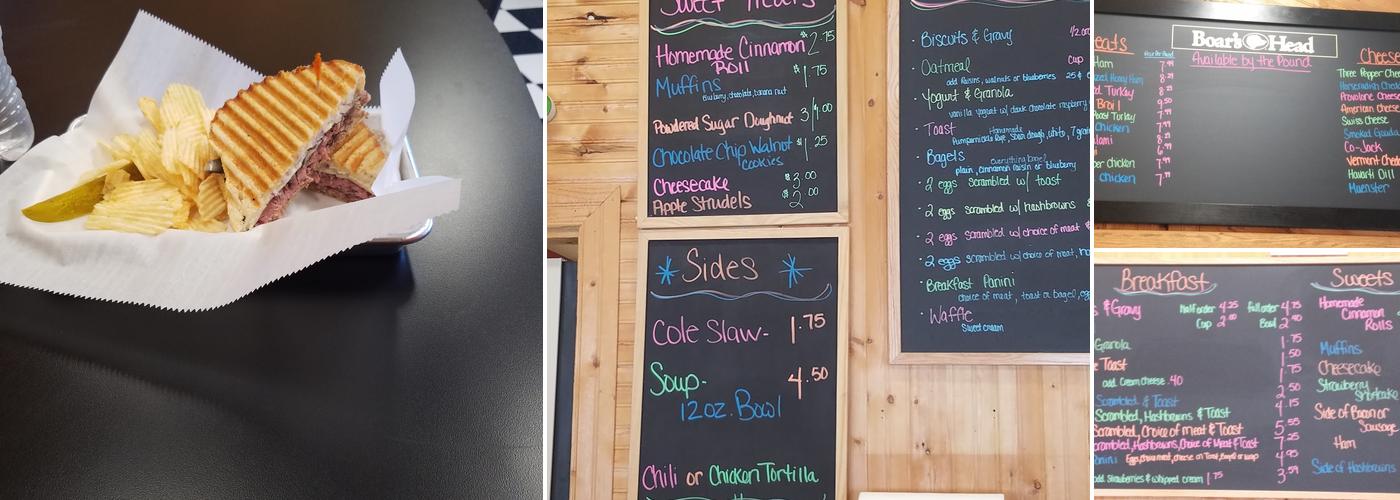 Sweet Treats
Homemade Cinnamon $2.75
Roll
Muffins $1.75
Blueberry, chocolate, banana nut
Powdered Sugar Doughnut 3/1.00
Chocolate Chip Walnut $1.25
cookies
Cheesecake $3.00
Apple Strudels $2.00
Sides
Cole Slaw- 1.75
Soup- 4.50
12oz. Bowl
Chili or Chicken Tortilla
Biscuits & Gravy 1/2 or
Oatmeal Cup
add Raisins, walnuts or blueberries 25¢
Yogurt & Granola
vanilla yogurt w/ dark chocolate raspberry
Toast Homemade
Pumpernickle Rye, Sour dough, white, 7 grain
Bagels everything bagel
plain, cinnamon raisin or blueberry
2 eggs scrambled w/ toast
2 eggs scrambled w/ hashbrowns &
2 eggs scrambled w/ choice of meat &
2 eggs scrambled w/ choice of meat, ha
Breakfast Panini
choice of meat, toast or bagel, egg
Waffle
Sweet cream
Boar's Head
Available by the Pound
eats
Ham 7.99
Honey Ham 8.29
Turkey
Broil 9.50
Roast Turkey 7.99
Chicken 7.99
lami
er chicken 7.99
chicken 7.99
Cheese
Three Pepper Che
Horseradish Chedda
Provolone Cheese
American Cheese
Swiss Cheese
Smoked Gouda
Co-Jack
Vermont Chedd
Havarti Dill
Muenster
Breakfast
s & Gravy Half order 4.25 Full order 4.75
Cup Bowl
Granola 1.75
e Toast 1.50
add Cream Cheese .40 1.75
Scrambled & Toast 2.50
Scrambled, Hashbrowns & Toast 4.15
Scrambled, Choice of Meat & Toast 5.55
crambled, Hashbrowns, Choice of Meat & Toast 7.25
anini Eggs, Choice meat, cheese on Toast, Bagel or wrap 4.95
add Strawberries & whipped cream 1.75 3.59
Sweets
Homemade
Cinnamon
Rolls
Muffins
Cheesecake
Strawberry
Shortcake
Side of Bacon or
Sausage
Ham
Side of Hashbrowns